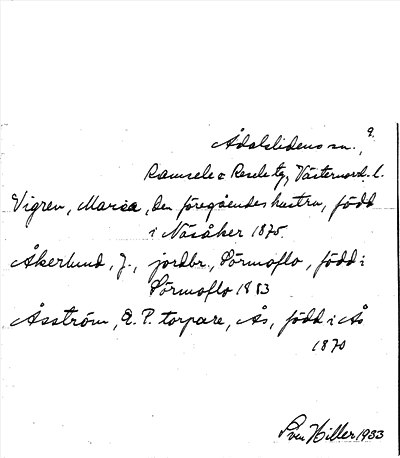 Ådalslidens sn., 9.
Ramsele o Resele tg, Västernorrl. l.
Vigren, Maria, den föregåendes hustru, född
i Näsåker 1875
Åkerlund, J., jordbr., Sörmoflo, född i
Sörmoflo 1883
Åsström, E. P. torpare, Ås, född i Ås
1870
Sven Hiller 1933